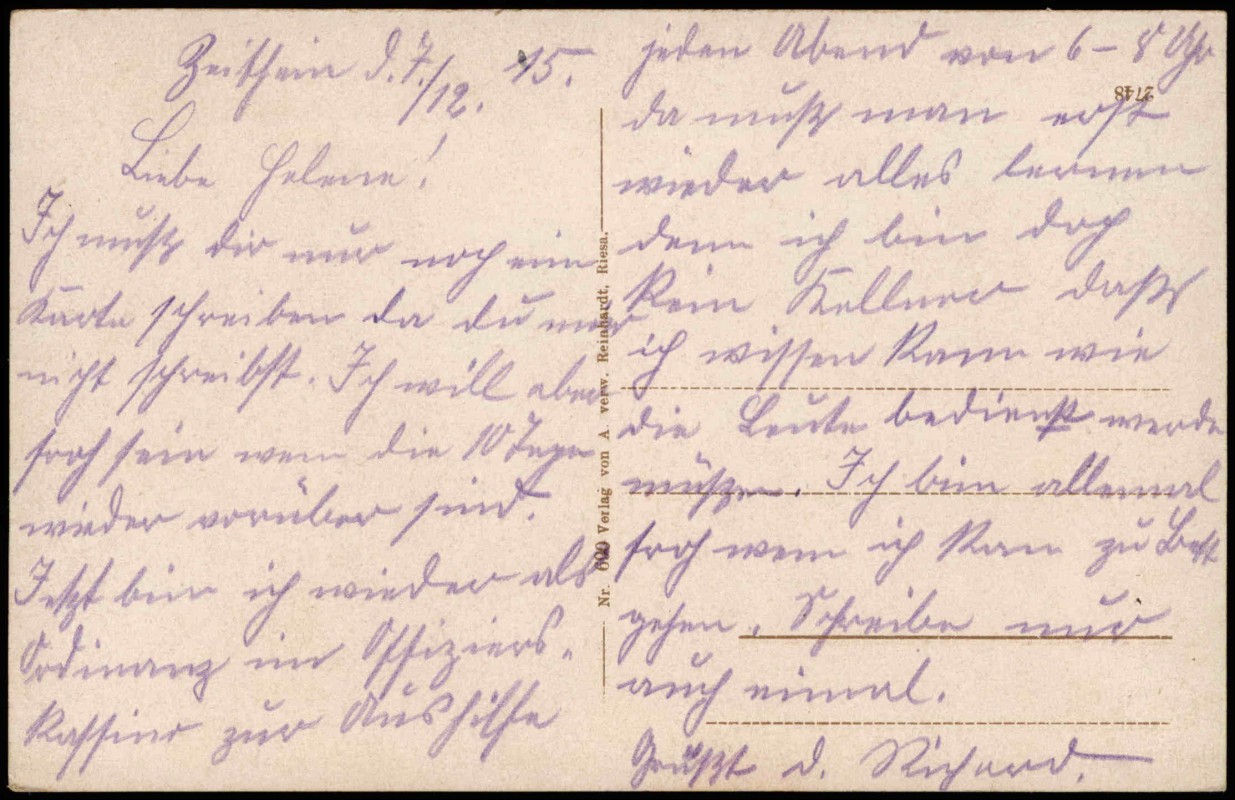 Zeithain d. 7./12. 15.
Liebe Helene!
Ich muß dir nur noch ein
Karte schreiben da du mir
nicht schreibst. Ich will aber
froh sein wenn die 10 Tage
wieder vorüber sind.
Jetzt bin ich wieder als
Ordinanz im Offiziers-
kassino zur Aushilfe
Nr. 600 Verlag von A. verw. Reinhardt, Riesa.
jeden Abend von 6-8 Uhr
2748
da muß man erst
wieder alles lernen
denn ich bin doch
kein Kellner daß
ich wissen kann wie
die Leute bedienst werde
müßen. Ich bin allemal
froh wenn ich kan zu Bett
gehen. Schreibe nur
auch einmal.
Grüßt d. Richard.